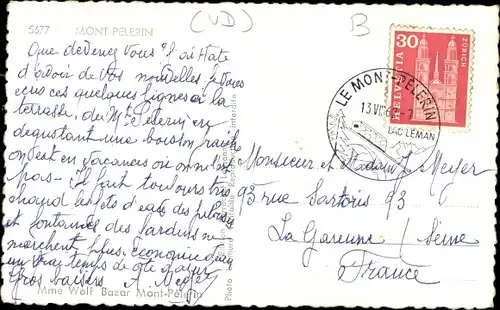 5677 MONT-PELERIN
(VD)
B
Que devenez vous j'ai Hate
d'avoir de vos nouvelles je vous
ecris ces quelques lignes à la
terrasse, du Mt Pelerin en
degustant une boisson fraiche
on est en vacances ou on ne l'
pas - Il fait toujours très
chaud les jets d'eau des
et fontaines des Jardins ne
marchent plus. Economie d'eau
un vrai temps de
Gros baisers A. Meyer
Mme Wolf Bazar Mont-Pelerin
HELVETIA
30
ZÜRICH
LE MONT-PELERIN
LAC LEMAN
Monsieur et Madame J. Meyer
93 rue Sartoris 93
La Garenne / Seine
France